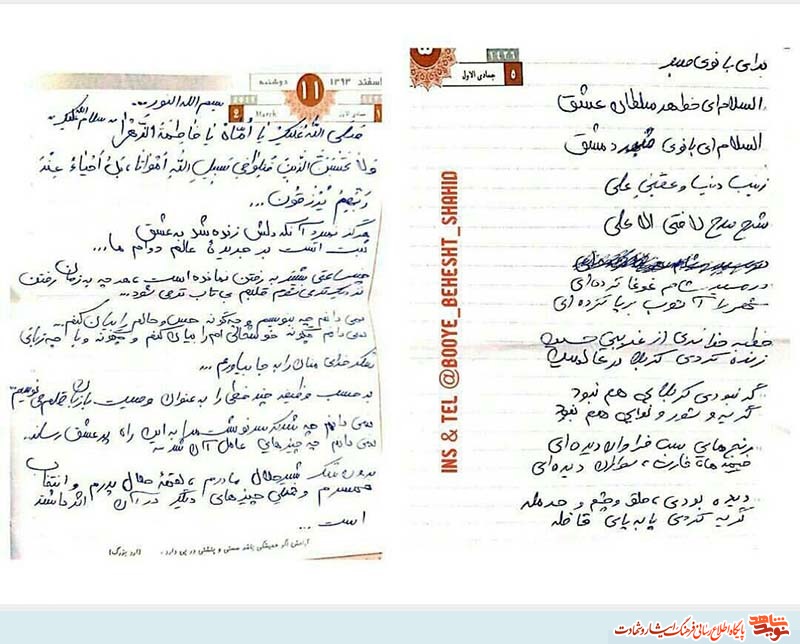 برای بانوی صبر
السلام ای خطهد سلطان عشق
السلام ای بانوی دمشق
زینب دنیا و عقبیٰ علی
شرح مدح لا فتی الا علی
در مسیر شام غوغا کرده‌ای
شهر را آشوب برپا کرده‌ای
خطبه خواندی از غریبی حسین
زنده کردی کربلا در عالمین
گر نبودی کربلایی هم نبود
گریه و شور و نوایی هم نبود
رنج‌هایی بس فراوان دیده‌ای
خیمه‌های غارت، سوزان دیده‌ای
دیده بودی، حلق و خنجر و حرمله
گریه کردی پا به پای قافله
۱۴۳۶
۵ جمادی الاول
INS & TEL @BOOYE_BEHESHT_SHAHID
اسفند ۱۳۹۳
۱۱
دوشنبه
2 March
بسم الله النور...
صلی الله علیک یا أماه یا فاطمة الزهرا سلام الله علیک
ولا تحسبن الذین قتلوا فی سبیل الله أمواتا، بل أحیاء عند
ربهم یرزقون...
هرگز نمیرد آنکه دلش زنده شد به عشق
ثبت است بر جریدهٔ عالم دوام ما...
چند ساعتی بیشتر به رفتن نمانده است، هر چه به زمان رفتن
نزدیکتر می‌شوم قلبم بی‌تاب تر می‌شود...
نمی دانم چه بنویسم و چگونه حس و حالم را بیان کنم...
نمی دانم چگونه خوشحالی ام را بیان کنم و چگونه و با چه زبانی
شکر خدای منان را به جا بیاورم...
به حسب وظیفه چند خطی را به عنوان وصیت با زبان قلم می نویسم
نمی دانم چه شد که سرنوشت مرا به این راه پر عشق رساند.
نمی دانم چه چیزهایی عامل آن شد.
بدون شک شیر حلال مادرم، لقمهٔ حلال پدرم و انتخاب
همسرم و خیلی چیزهای دیگر در آن اثر داشته
است...
آرامش اگر همیشگی باشد سستی و پلشتی در پی دارد. (ارد بزرگ)
نوید شاهد
پایگاه اطلاع رسانی فرهنگ ایثار و شهادت